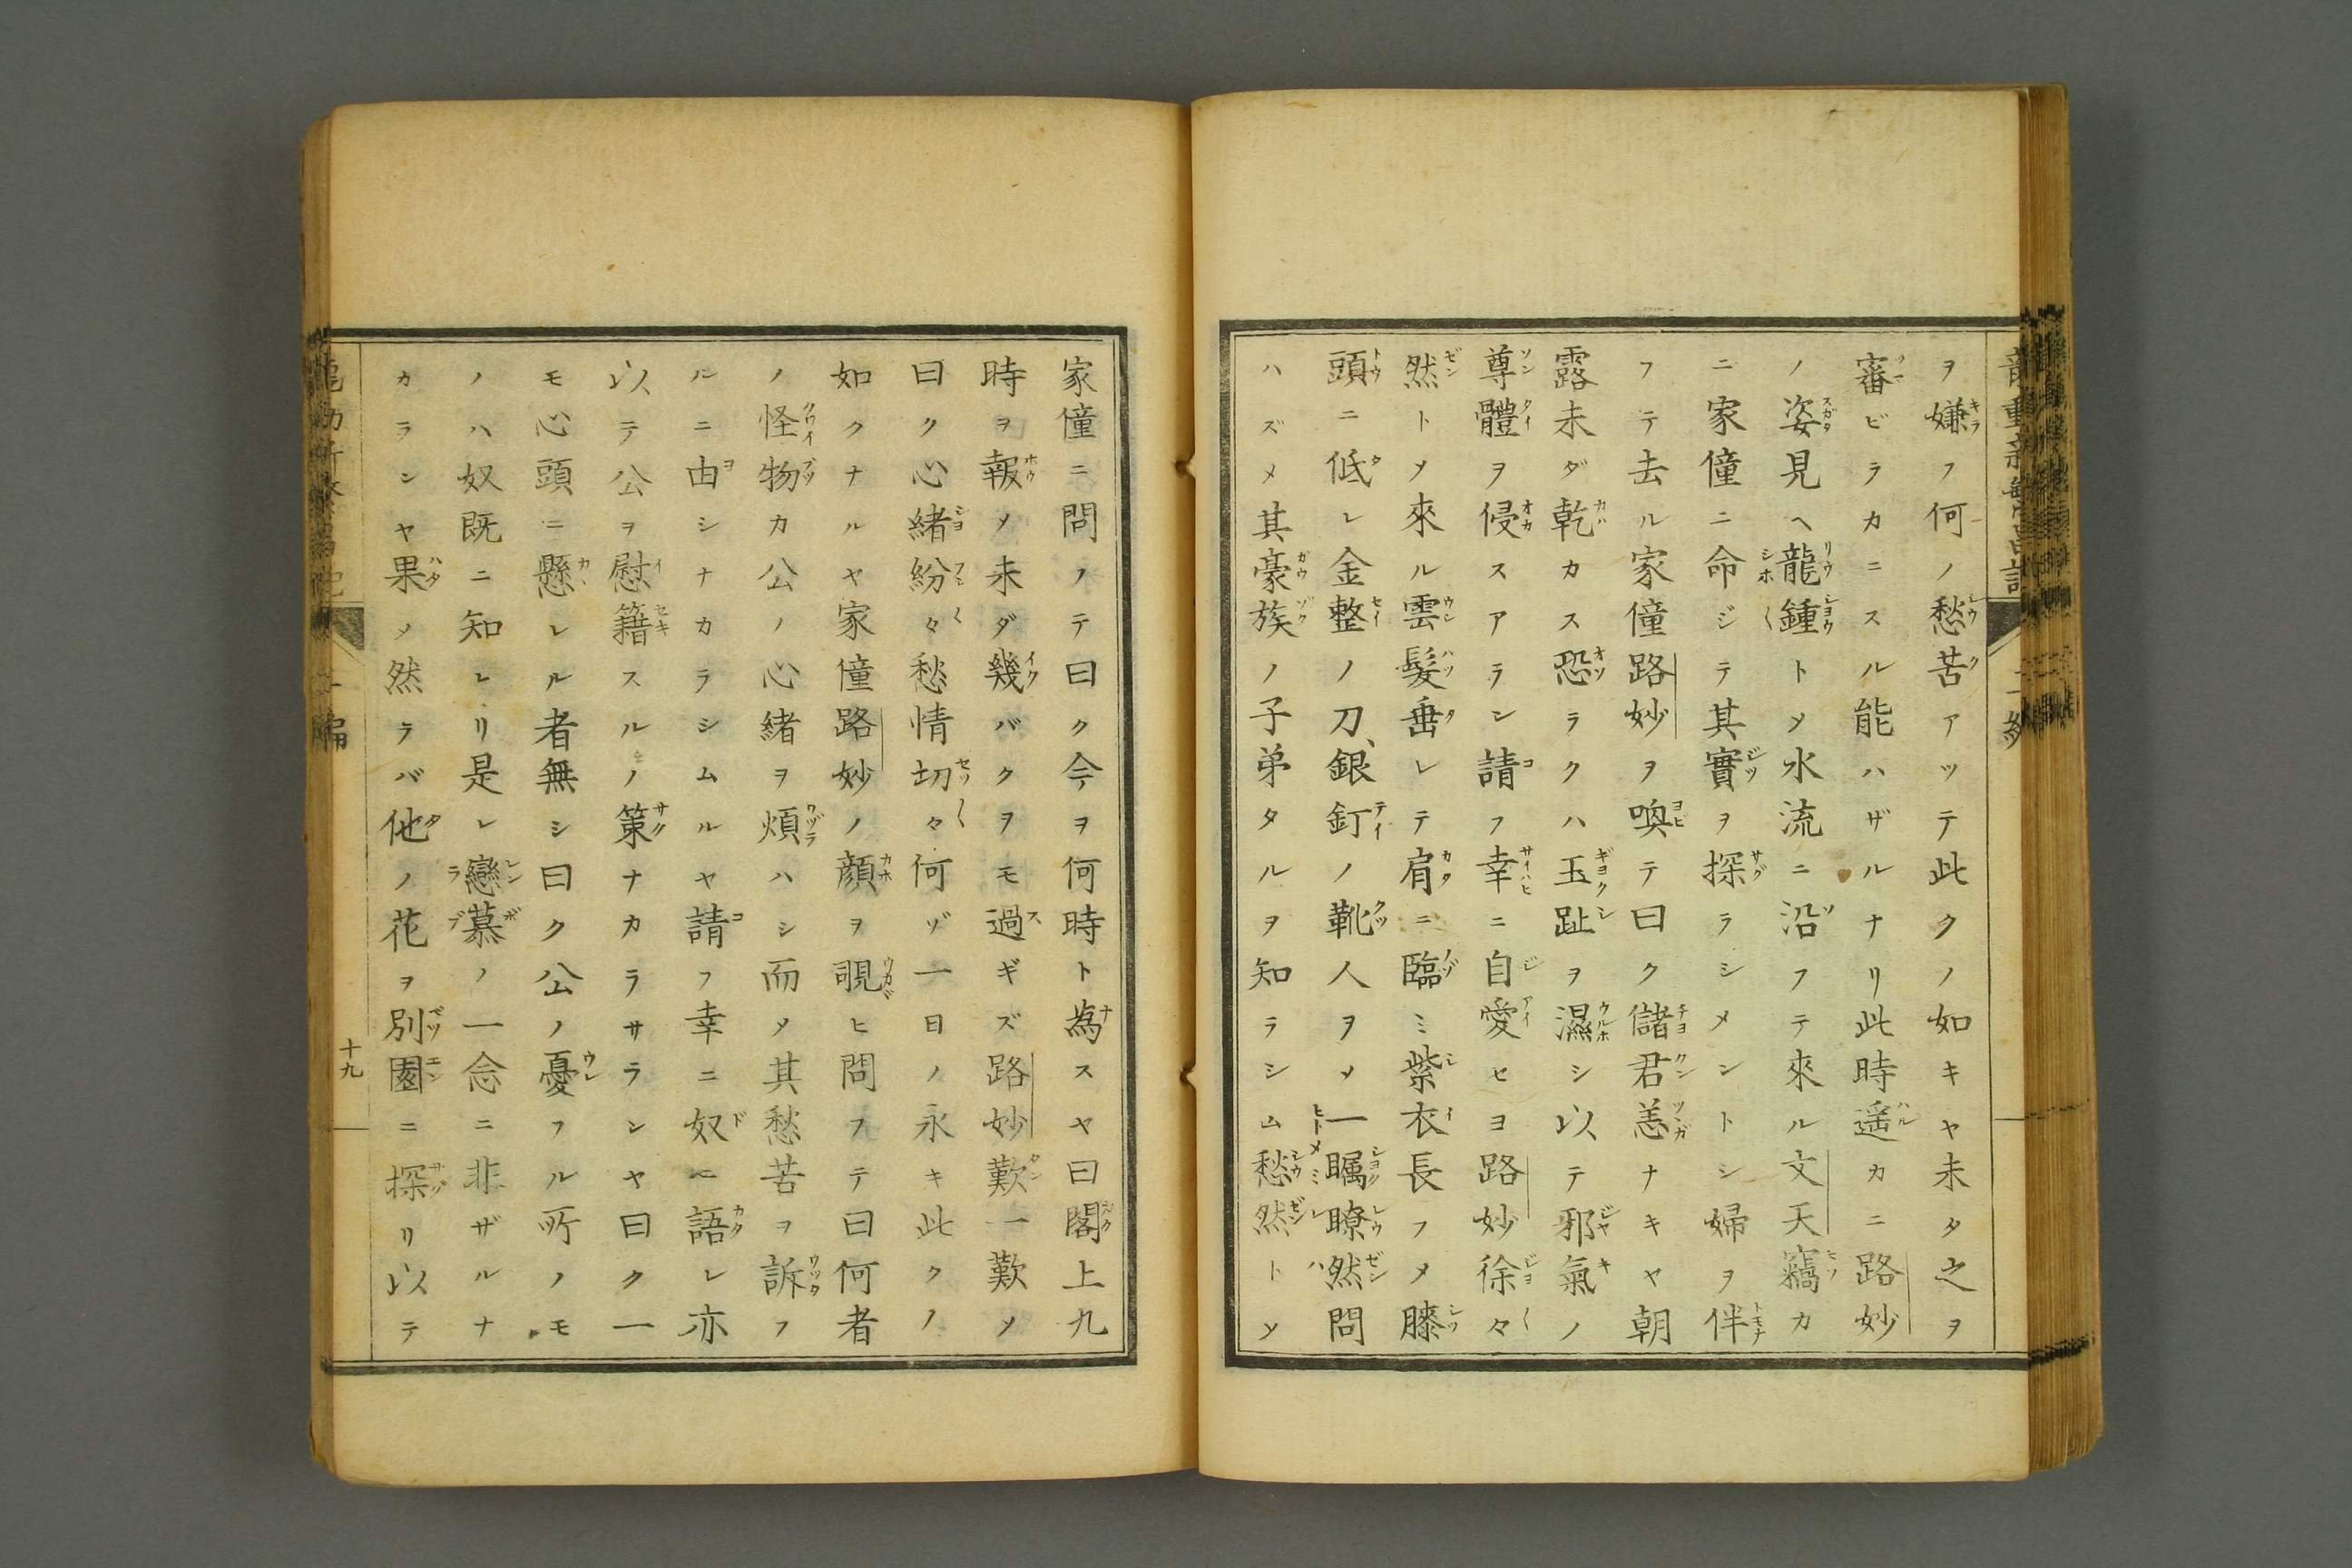 ヲ嫌フ何ノ愁苦アツテ此クノ如キヤ未タ之ヲ
審ビラカニスル能ハザルナリ此時遥カニ路妙
ノ姿見ヘ龍鍾トメ水流ニ沿フテ來ル文天竊カ
ニ家僮ニ命ジテ其實ヲ探ラシメントシ婦ヲ伴
フテ去ル家僮路妙ヲ喚テ曰ク儲君恙ナキヤ朝
露未ダ乾カス恐ラクハ玉趾ヲ濕シ以テ邪氣ノ
尊體ヲ侵スアラン請フ幸ニ自愛セヨ路妙徐々
然トメ來ル雲髮垂レテ肩ニ臨ミ紫衣長フメ膝
頭ニ低レ金整ノ刀、銀釘ノ靴人ヲメ一矚瞭然問
ハズメ其豪族ノ子弟タルヲ知ラシム愁然トメ
家僮ニ問ノテ曰ク今ヲ何時ト為スヤ曰閣上九
時ヲ報メ未ダ幾バクヲモ過ギズ路妙歎一歎メ
曰ク心緒紛々愁情切々何ゾ一日ノ永キ此クノ
如クナルヤ家僮路妙ノ顔ヲ覗ヒ問フテ曰何者
ノ怪物カ公ノ心緒ヲ煩ハシ而メ其愁苦ヲ訴フ
ルニ由シナカラシムルヤ請フ幸ニ奴ニ語レ亦
以テ公ヲ慰籍スルノ策ナカラサランヤ曰ク一
モ心頭ニ懸レル者無シ曰ク公ノ憂フル所ノモ
ノハ奴既ニ知レリ是レ戀慕ノ一念ニ非ザルナ
カランヤ果メ然ラバ他ノ花ヲ別園ニ探リ以テ
二編
十九